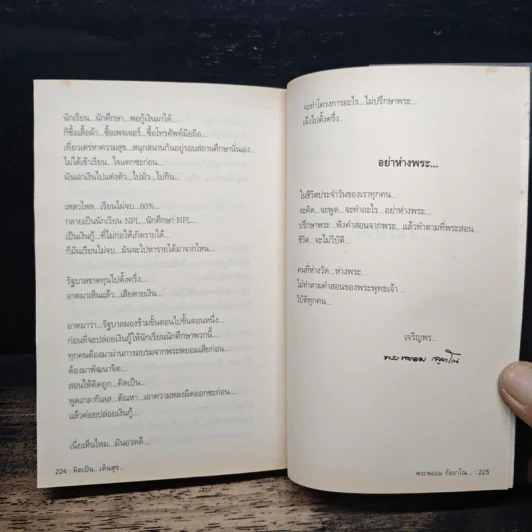 นักเรียน...นักศึกษา...พอกู้เงินมาได้...
ก็ซื้อเสื้อผ้า...ซื้อเพจเจอร์...ซื้อโทรศัพท์มือถือ...
เที่ยวเตร่หาความสุข...สนุกสนานกันอยู่รอบสถานศึกษานั่นเอง...
ไม่ได้เข้าเรียน...ใจแตกซะก่อน...
มันเอาเงินไปแต่งตัว...ไปมั่ว...ไปกิน...
เหลวไหล...เรียนไม่จบ...60%...
กลายเป็นนักเรียน NPL...นักศึกษา NPL...
เป็นเงินกู้...ที่ไม่ก่อให้เกิดรายได้...
ก็มันเรียนไม่จบ...มันจะไปหารายได้มาจากไหน...
รัฐบาลขาดทุนไปตั้งครึ่ง...
อาตมาเห็นแล้ว...เสียดายเงิน...
อาตมาว่า...รัฐบาลมองข้ามขั้นตอนไปขั้นตอนหนึ่ง...
ก่อนที่จะปล่อยเงินกู้ให้นักเรียนนักศึกษาพวกนี้...
ทุกคนต้องมาผ่านการอบรมจากพระพยอมเสียก่อน...
ต้องมาพัฒนาจิต...
สอนให้คิดถูก...คิดเป็น...
พูดเกลากิเลส...ตัณหา...เอาความหลงผิดออกซะก่อน...
แล้วค่อยปล่อยเงินกู้...
เนี่ยเห็นไหม...มันอวดดี...
224 : คิดเป็น...เห็นสุข...
จะทำโครงการอะไร...ไม่ปรึกษาพระ...
เจ๊งไปตั้งครึ่ง...
อย่าห่างพระ...
ในชีวิตประจำวันของเราทุกคน...
จะคิด...จะพูด...จะทำอะไร...อย่าห่างพระ...
ปรึกษาพระ...ฟังคำสอนจากพระ...แล้วทำตามที่พระสอน...
ชีวิต...จะไม่วิบัติ...
คนที่ห่างวัด...ห่างพระ...
ไม่ทำตามคำสอนของพระพุทธเจ้า...
วิบัติทุกคน...
เจริญพร...
พระพยอม กัลยาโณ
พระพยอม กัลยาโณ... : 225